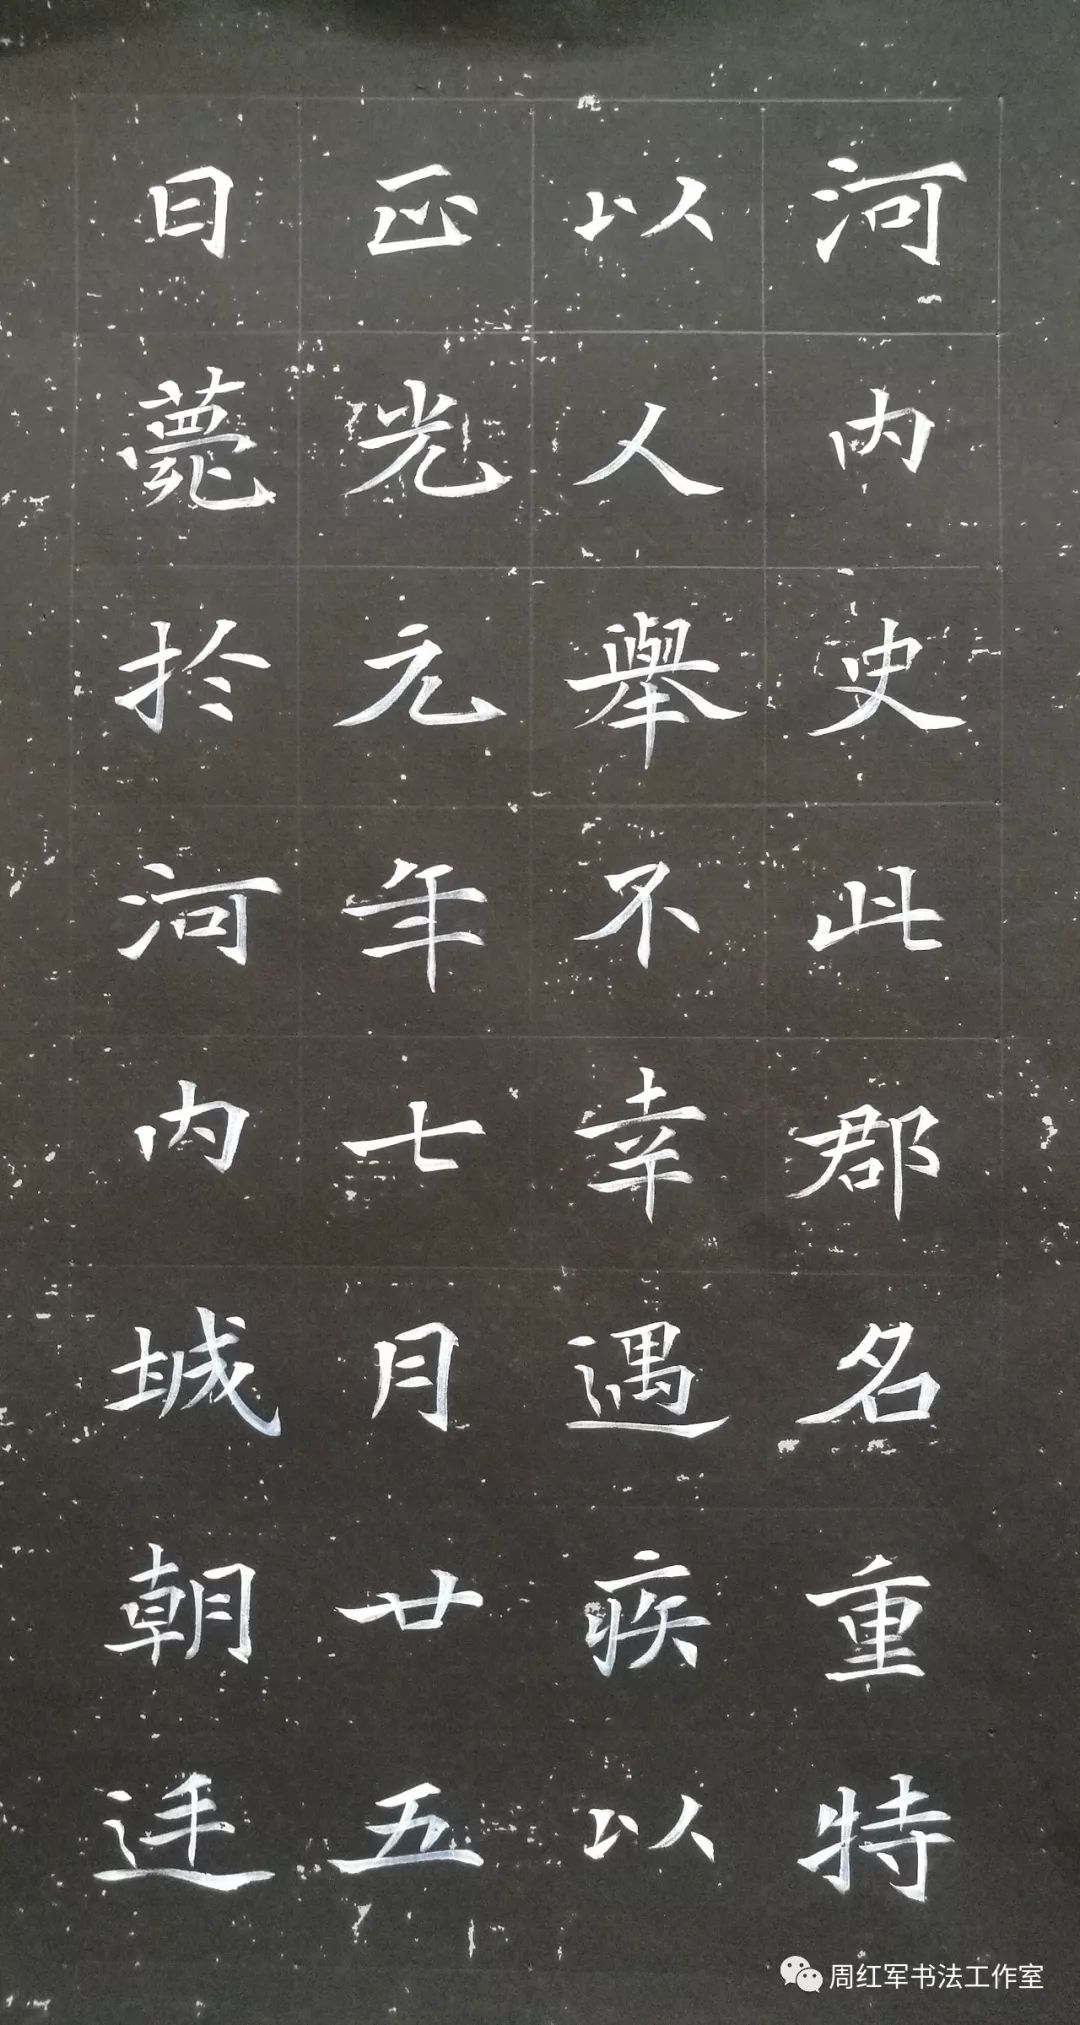 河内史此郡名重特
以人舉不幸遇疾以
正光元年七月廿五
日薨於河内城朝廷
周红军书法工作室